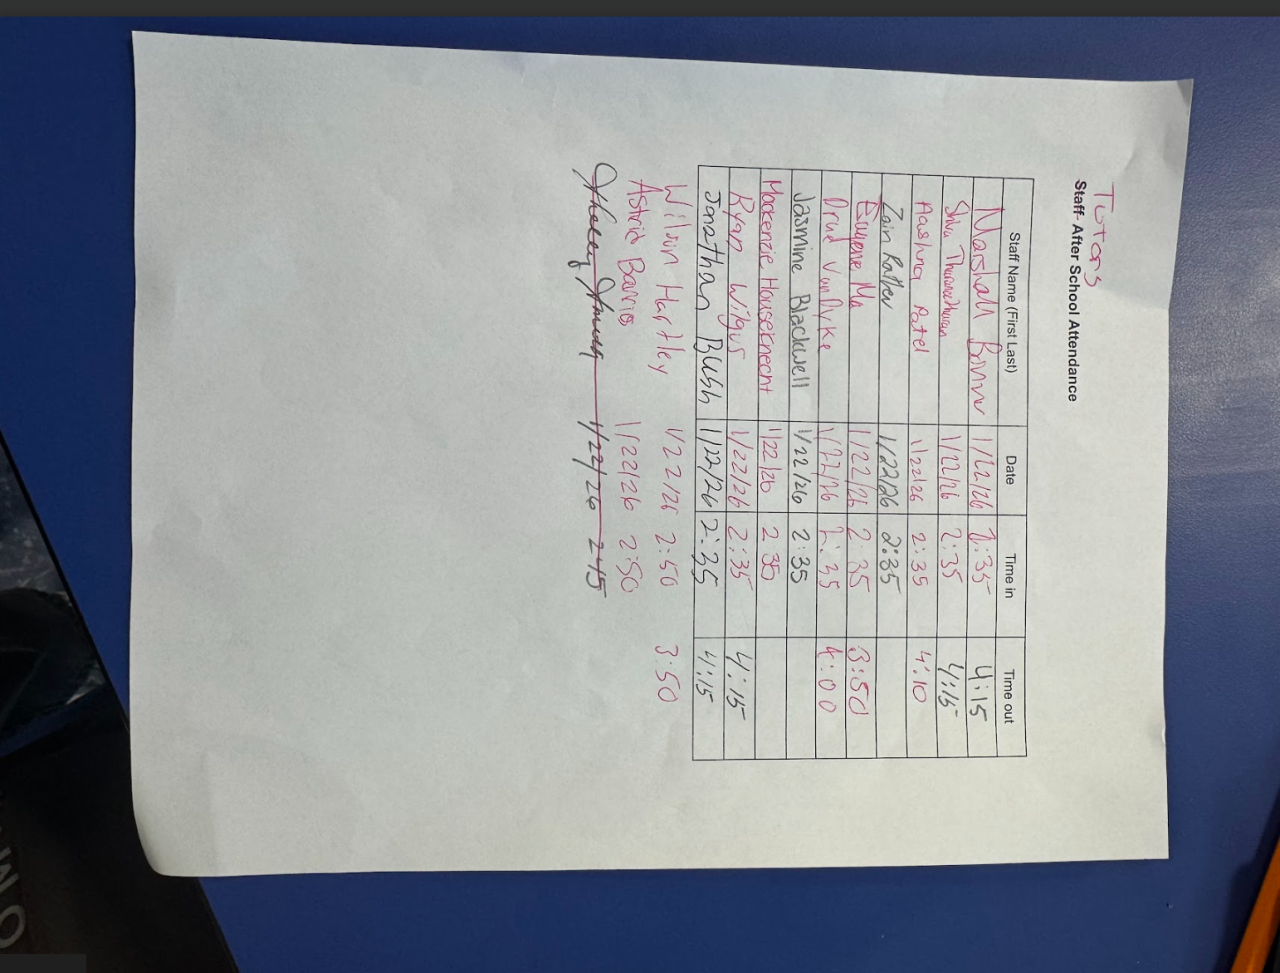 Tutors
Staff- After School Attendance
Staff Name (First Last) Date Time in Time out
Marshall 1/22/26 2:35 4:15
Shiva 1/22/26 2:35 4:15
Aashna Patel 1/22/26 2:35 4:10
Zain 1/22/26 2:35
Eugene Ma 1/22/26 2:35 3:50
Drue VanDyke 1/22/26 2:35 4:00
Jasmine Blackwell 1/22/26 2:35
Mackenzie Houseknecht 1/22/26 2:35
Ryan Wilgus 1/22/26 2:35 4:15
Jonathan Bush 1/22/26 2:35 4:15
Wilson Hartley 1/22/26 2:50 3:50
Astrid Barrios 1/22/26 2:50
1/22/26 2:45